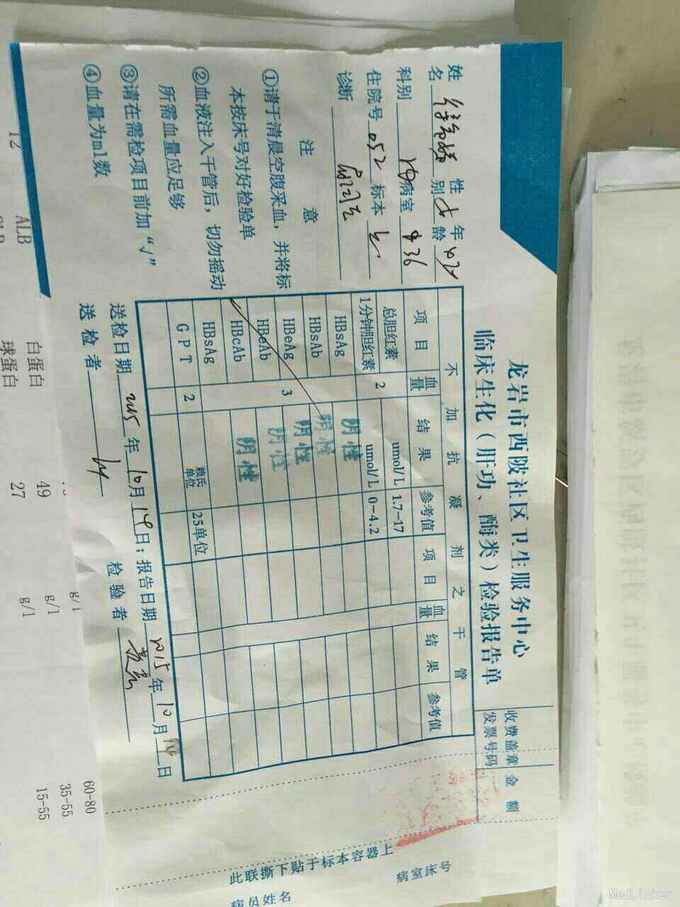 龙岩市西陂社区卫生服务中心
临床生化（肝功、酶类）检验报告单
收费盖章 金额
发票号码
姓名 性别 女 年龄
科别 内 病室 中36
住院号 052 标本
诊断
注意
①请于清晨空腹采血，并将标
本按床号对好检验单
②血液注入干管后，切勿摇动
所需血量应足够
③请在需检项目前加“√”
④血量为ml数
不加抗凝剂之干管
项目 血量 结果 参考值 项目 血量 结果 参考值
总胆红素 2 umol/L 1.7-17
1分钟胆红素 umol/L 0-4.2
HBsAg 3 阴性
HBsAb 阴性
HBeAg 阴性
HBeAb 阴性
HBcAb 阴性
HBsAg
GPT 2 赖氏单位 25单位
送检日期 2015 年 10 月 19 日；报告日期 2015 年 10 月 19 日
送检者 检验者
此联撕下贴于标本容器上
病室床号
病员姓名
12 ALB 白蛋白 49 g/l 35-55
球蛋白 27 g/l 15-55
g/l 60-80